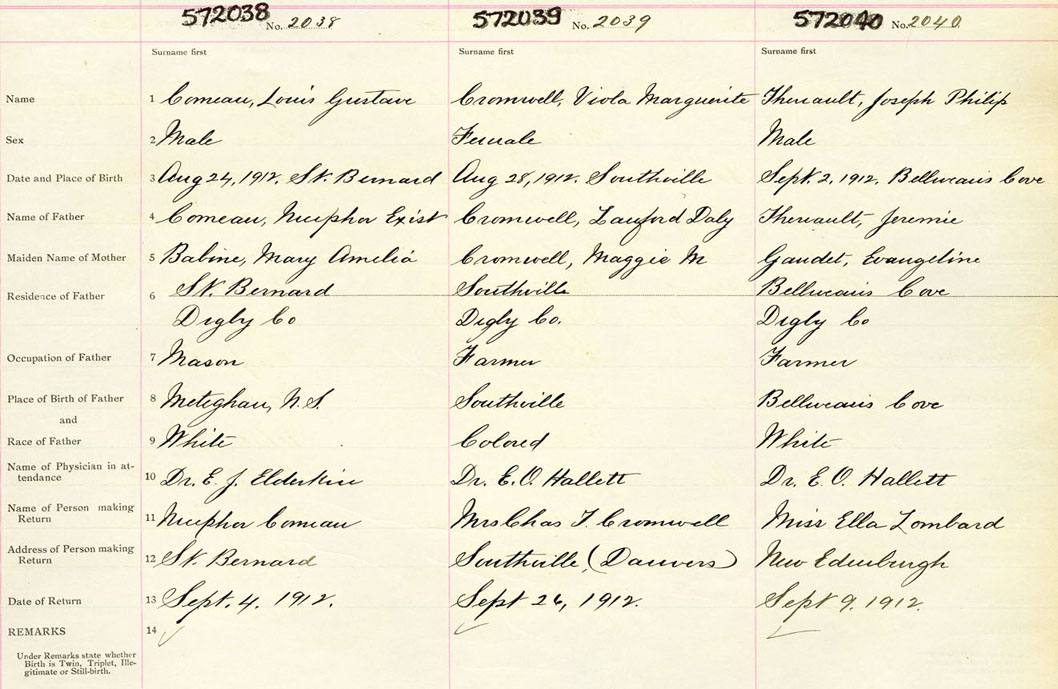 572038 No. 2038 572039 No. 2039 572040 No. 2040
Surname first Surname first Surname first
Name 1 Comeau, Louis Gustave Cromwell, Viola Marguerite Theriault, Joseph Philip
Sex 2 Male Female Male
Date and Place of Birth 3 Aug 24, 1912. St. Bernard Aug 28, 1912. Southville Sept. 2, 1912. Belliveaus Cove
Name of Father 4 Comeau, Exist Cromwell, Daly Theriault, Jeremie
Maiden Name of Mother 5 Babine, Mary Amelia Cromwell, Maggie M Gaudet, Evangeline
Residence of Father 6 St. Bernard Southville Belliveaus Cove
Digby Co Digby Co. Digby Co
Occupation of Father 7 Mason Farmer Farmer
Place of Birth of Father 8 Meteghan, N.S. Southville Belliveaus Cove
and
Race of Father 9 White Colored White
Name of Physician in at-
tendance 10 Dr. E. J. Elderkin Dr. E. O. Hallett Dr. E. O. Hallett
Name of Person making
Return 11 Comeau Mrs Chas F. Cromwell Miss Ella Lombard
Address of Person making
Return 12 St. Bernard Southville (Danvers) New Edinburgh
Date of Return 13 Sept. 4. 1912. Sept 26, 1912. Sept 9. 1912.
REMARKS 14
Under Remarks state whether
Birth is Twin, Triplet, Ille-
gitimate or Still-birth.